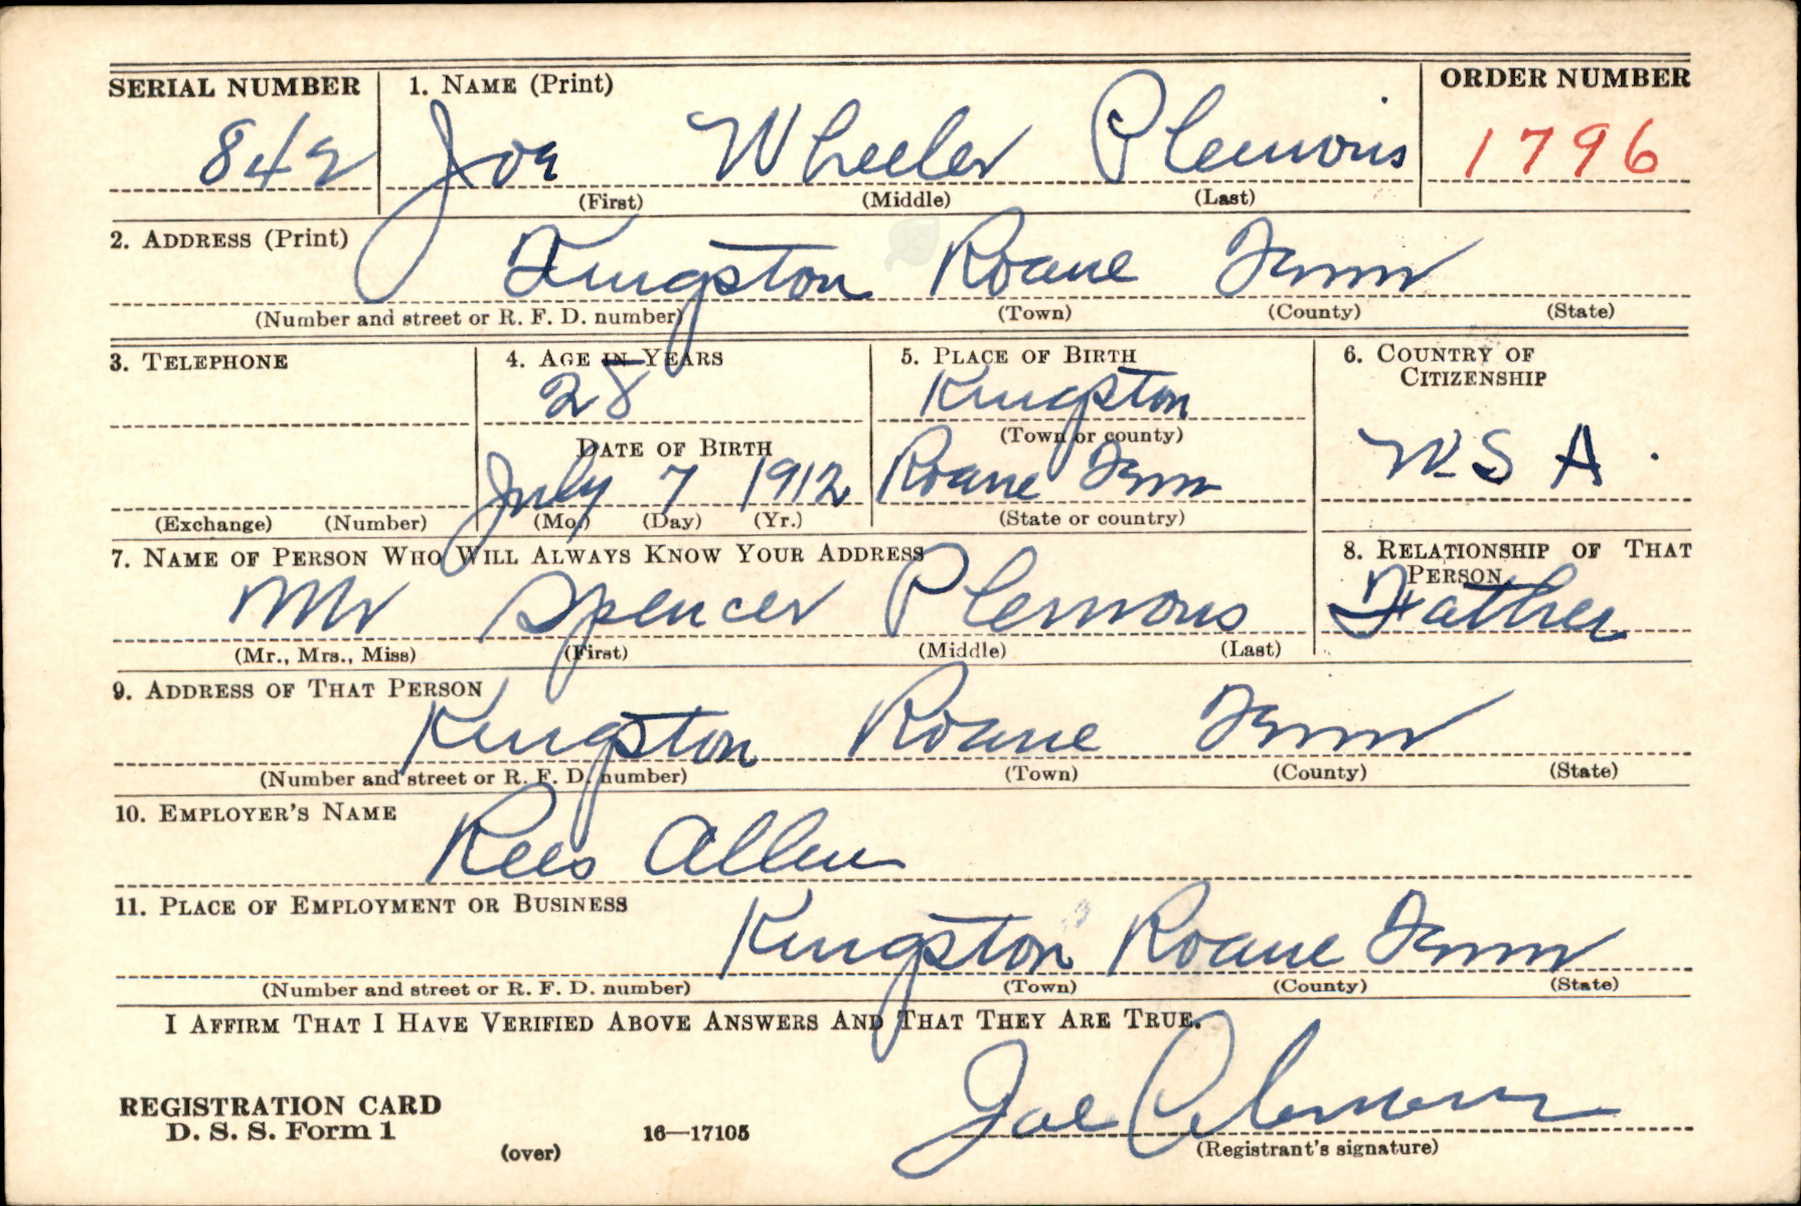 SERIAL NUMBER 1. NAME (Print) ORDER NUMBER
842 Joe Wheeler Plemons 1796
(First) (Middle) (Last)
2. ADDRESS (Print)
Kingston Roane Tenn
(Number and street or R. F. D. number) (Town) (County) (State)
3. TELEPHONE 4. AGE IN YEARS 5. PLACE OF BIRTH 6. COUNTRY OF CITIZENSHIP
28 Kingston
(Town or county)
DATE OF BIRTH U.S A.
July 7 1912 Roane Tenn
(Exchange) (Number) (Mo.) (Day) (Yr.) (State or country)
7. NAME OF PERSON WHO WILL ALWAYS KNOW YOUR ADDRESS 8. RELATIONSHIP OF THAT PERSON
Mr Spencer Plemons Father
(Mr., Mrs., Miss) (First) (Middle) (Last)
9. ADDRESS OF THAT PERSON
Kingston Roane Tenn
(Number and street or R. F. D. number) (Town) (County) (State)
10. EMPLOYER'S NAME
Rees Allen
11. PLACE OF EMPLOYMENT OR BUSINESS
Kingston Roane Tenn
(Number and street or R. F. D. number) (Town) (County) (State)
I AFFIRM THAT I HAVE VERIFIED ABOVE ANSWERS AND THAT THEY ARE TRUE.
REGISTRATION CARD
D. S. S. Form 1 Joe Plemons
(over) 16—17105 (Registrant's signature)